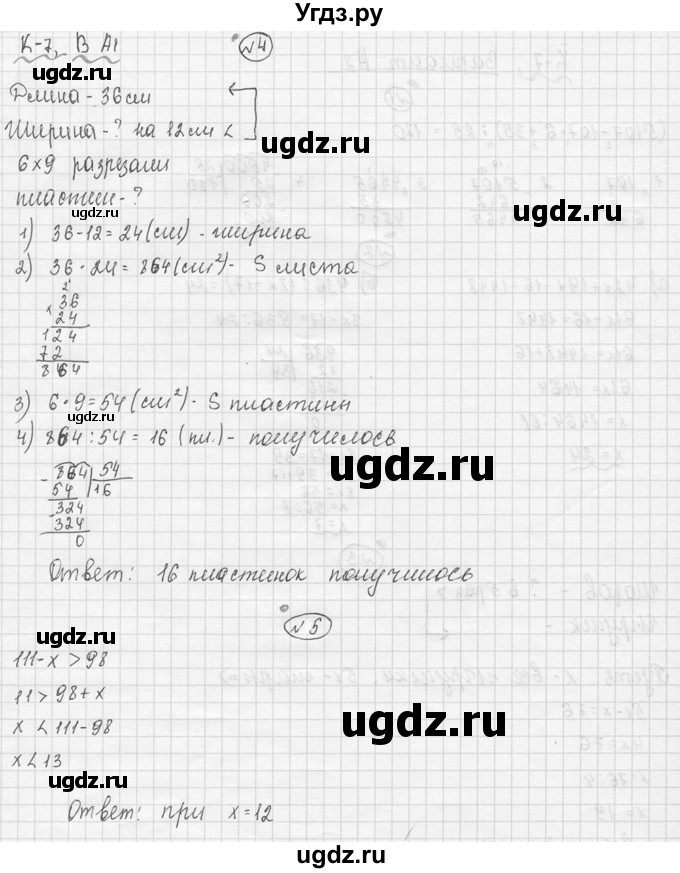 Угдз.ру
К-7, В А1
№4
Длина - 36 см
Ширина - ? на 12 см <
6×9 разрезали
пластин - ?
1) 36-12=24(см) - ширина
2) 36·24=864(см²)- S листа
2
×36
24
124
72
864
3) 6·9=54(см²)- S пластины
4) 864:54=16 (пл.)- получилось
-864|54
54 |16
-324
324
0
Ответ: 16 пластинок получилось
№5
111-х>98
11>98+х
х<111-98
х<13
Ответ: при х=12
ugdz.ru
ugdz.ru
ugdz.ru
ugdz.ru
ugdz.ru
ugdz.ru
ugdz.ru
ugdz.ru
ugdz.ru
ugdz.ru
ugdz.ru
ugdz.ru
ugdz.ru
ugdz.ru